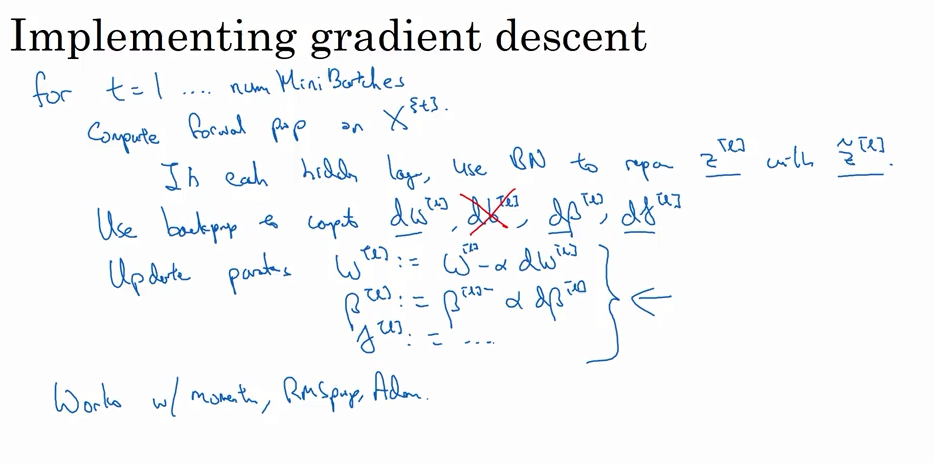 Implementing gradient descent
for t = 1 .... num Mini Batches
Compute forward prop on X^{t}.
In each hidden layer, use BN to repon z^[l] with z̃^[l].
Use backprop to compt dw^[l], db^[l], dβ^[l], dγ^[l]
Update partes w^[l] := w^[l] - α dw^[l]
β^[l] := β^[l] - α dβ^[l]
γ^[l] := ....
Works w/ momentum, RMSprop, Adam.